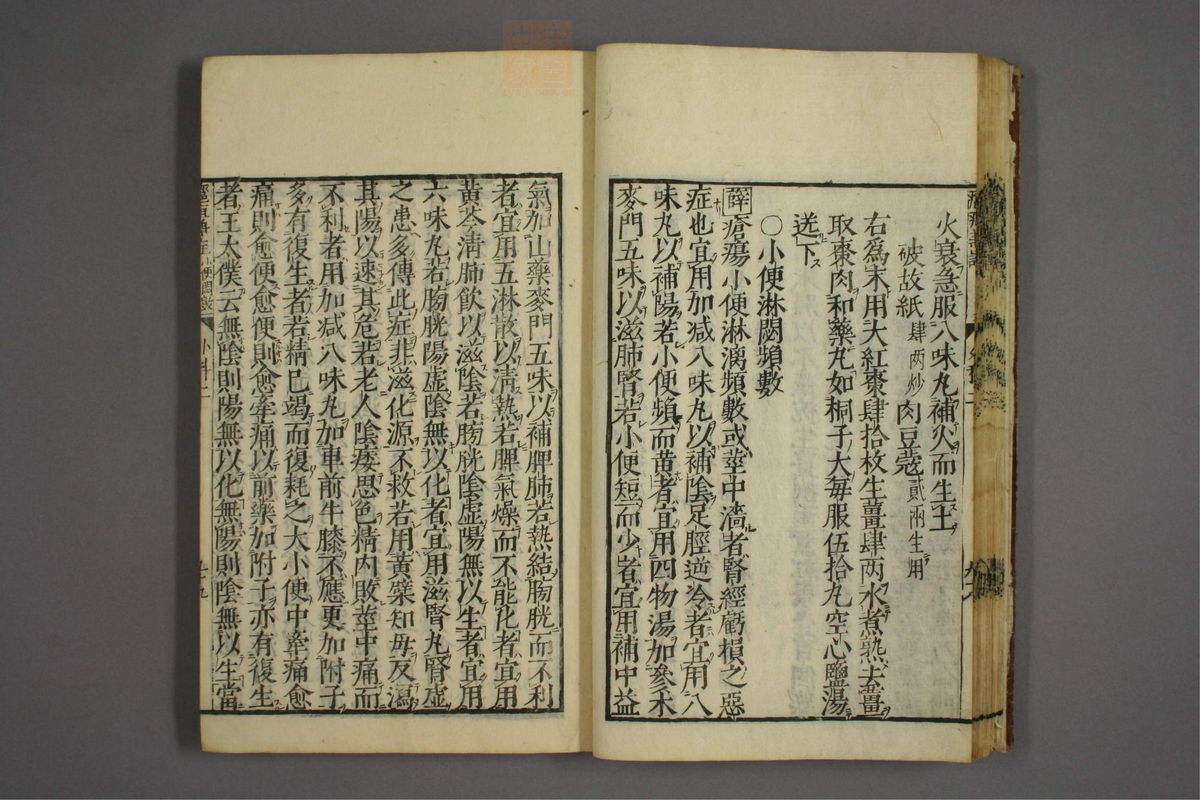 火衰急服八味丸補火而生土
破故紙肆两炒肉豆蔻貳兩生用
右爲末用大紅棗肆拾枚生薑肆两水煮熟去薑
取棗肉和藥丸如桐子大每服伍拾丸空心鹽湯
送下
〇小便淋閟頻數
薛瘡瘍小便淋漓頻數或莖中濇者腎經虧損之惡
症也宜用加减八味丸以補陰足脛逆冷者宜用八
味丸以補陽若小便頻而黃者宜用四物湯加參术
麥門五味以滋肺腎若小便短而少者宜用補中益
氣加山藥麥門五味以補脾肺若熱結膀胱而不利
者宜用五淋散以清熱若脾氣燥而不能化者宜用
黃芩清肺飲以滋陰若膀胱陰虛陽無以生者宜用
六味丸若膀胱陽虛陰無以化者宜用滋腎丸腎虛
之患多傳此症非滋化源不救若用黃蘗知母反瀉
其陽以速其危若老人陰痿思色精內敗莖中痛而
不利者用加减八味丸加車前牛膝不應更加附子
多有復生者若精已竭而復耗之大小便中牽痛愈
痛則愈便愈便則愈牽痛以前藥加附子亦有復生
者王太僕云無陰則陽無以化無陽則陰無以生當